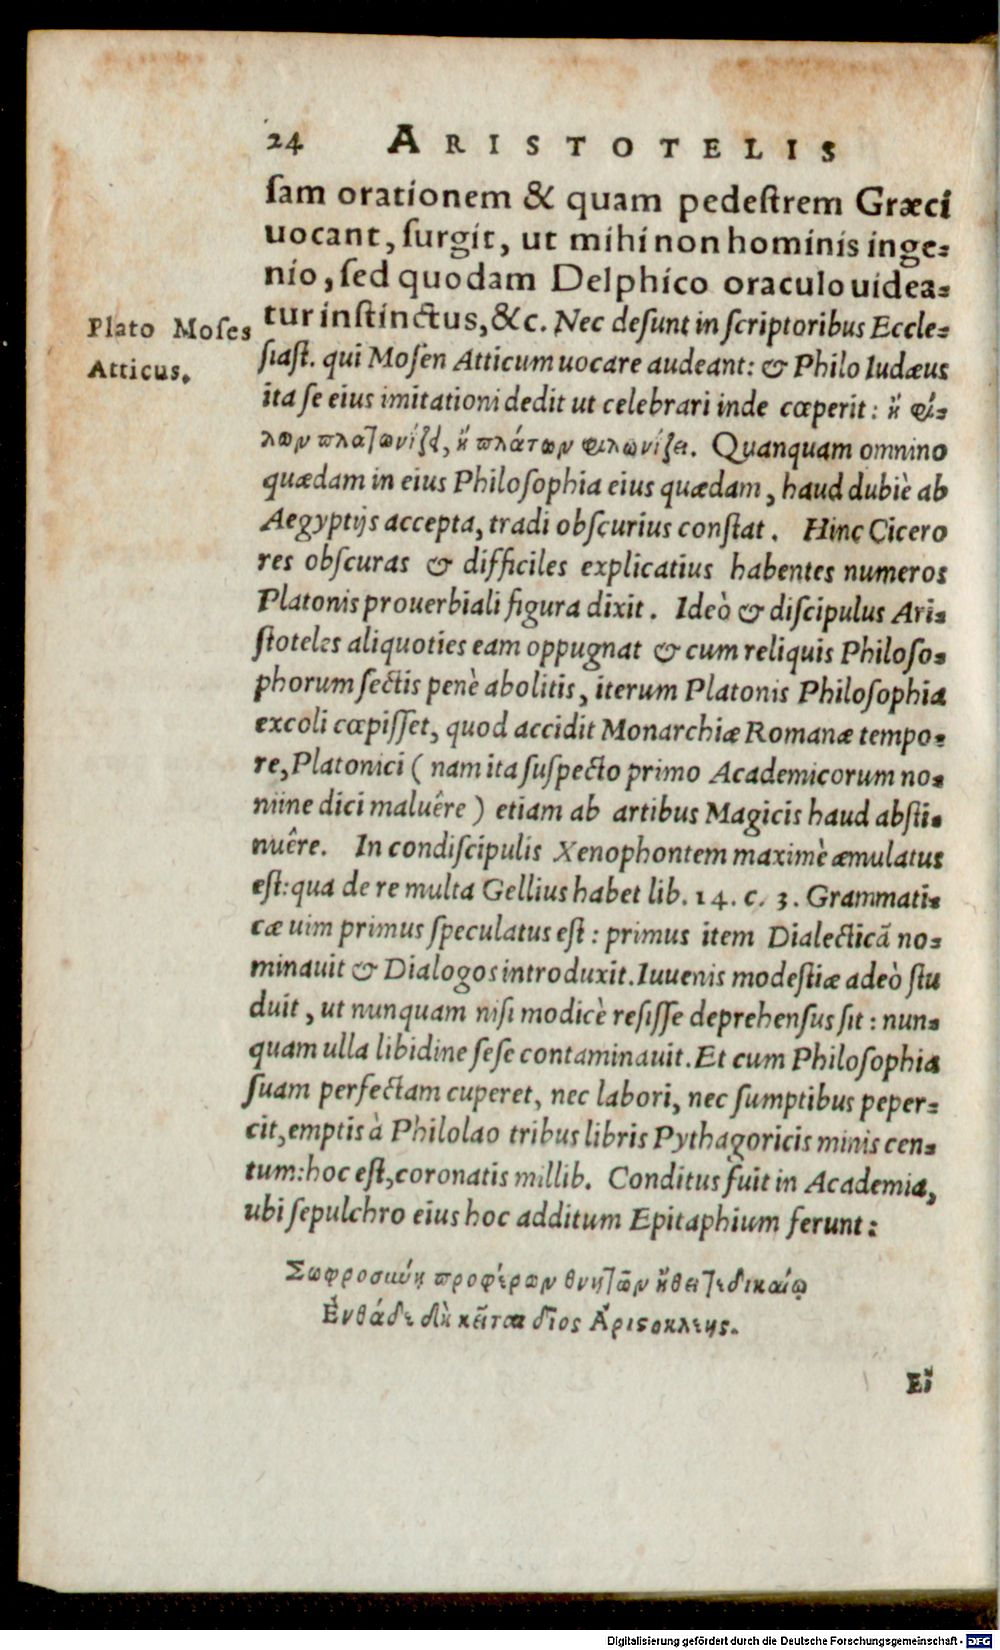 24 ARISTOTELIS
ſam orationem & quam pedeſtrem Græci
uocant, ſurgit, ut mihi non hominis inge=
nio, ſed quodam Delphico oraculo uidea=
tur inſtinctus, &c. Nec deſunt in ſcriptoribus Eccle=
Plato Moſes
Atticus.
ſiaſt. qui Moſen Atticum uocare audeant: & Philo Iudæus
ita ſe eius imitationi dedit ut celebrari inde cœperit: ἢ φί=
λων πλατωνίζει, ἢ πλάτων φιλωνίζει. Quanquam omnino
quædam in eius Philoſophia eius quædam, haud dubiè ab
Aegyptijs accepta, tradi obſcurius conſtat. Hinc Cicero
res obſcuras & difficiles explicatius habentes numeros
Platonis prouerbiali figura dixit. Ideò & diſcipulus Ari=
ſtoteles aliquoties eam oppugnat & cum reliquis Philoſo=
phorum ſectis penè abolitis, iterum Platonis Philoſophia
excoli cœpiſſet, quod accidit Monarchiæ Romanæ tempo=
re, Platonici (nam ita ſuſpecto primo Academicorum no=
mine dici maluêre) etiam ab artibus Magicis haud abſti=
nuêre. In condiſcipulis Xenophontem maximè æmulatus
eſt: qua de re multa Gellius habet lib. 14. c. 3. Grammati=
cæ uim primus ſpeculatus eſt: primus item Dialecticā no=
minauit & Dialogos introduxit. Iuuenis modeſtiæ adeò ſtu
duit, ut nunquam niſi modicè reſiſſe deprehenſus ſit: nun=
quam ulla libidine ſeſe contaminauit. Et cum Philoſophia
ſuam perfectam cuperet, nec labori, nec ſumptibus peper=
cit, emptis à Philolao tribus libris Pythagoricis minis cen=
tum: hoc eſt, coronatis millib. Conditus fuit in Academia,
ubi ſepulchro eius hoc additum Epitaphium ferunt:
Σωφροσύνῃ προφέρων θνητῶν ἤθει τε δικαίῳ
Ἐνθάδε δὴ κεῖται δῖος Ἀριστοκλέης.
Εἰ
Digitalisierung gefördert durch die Deutsche Forschungsgemeinschaft - DFG